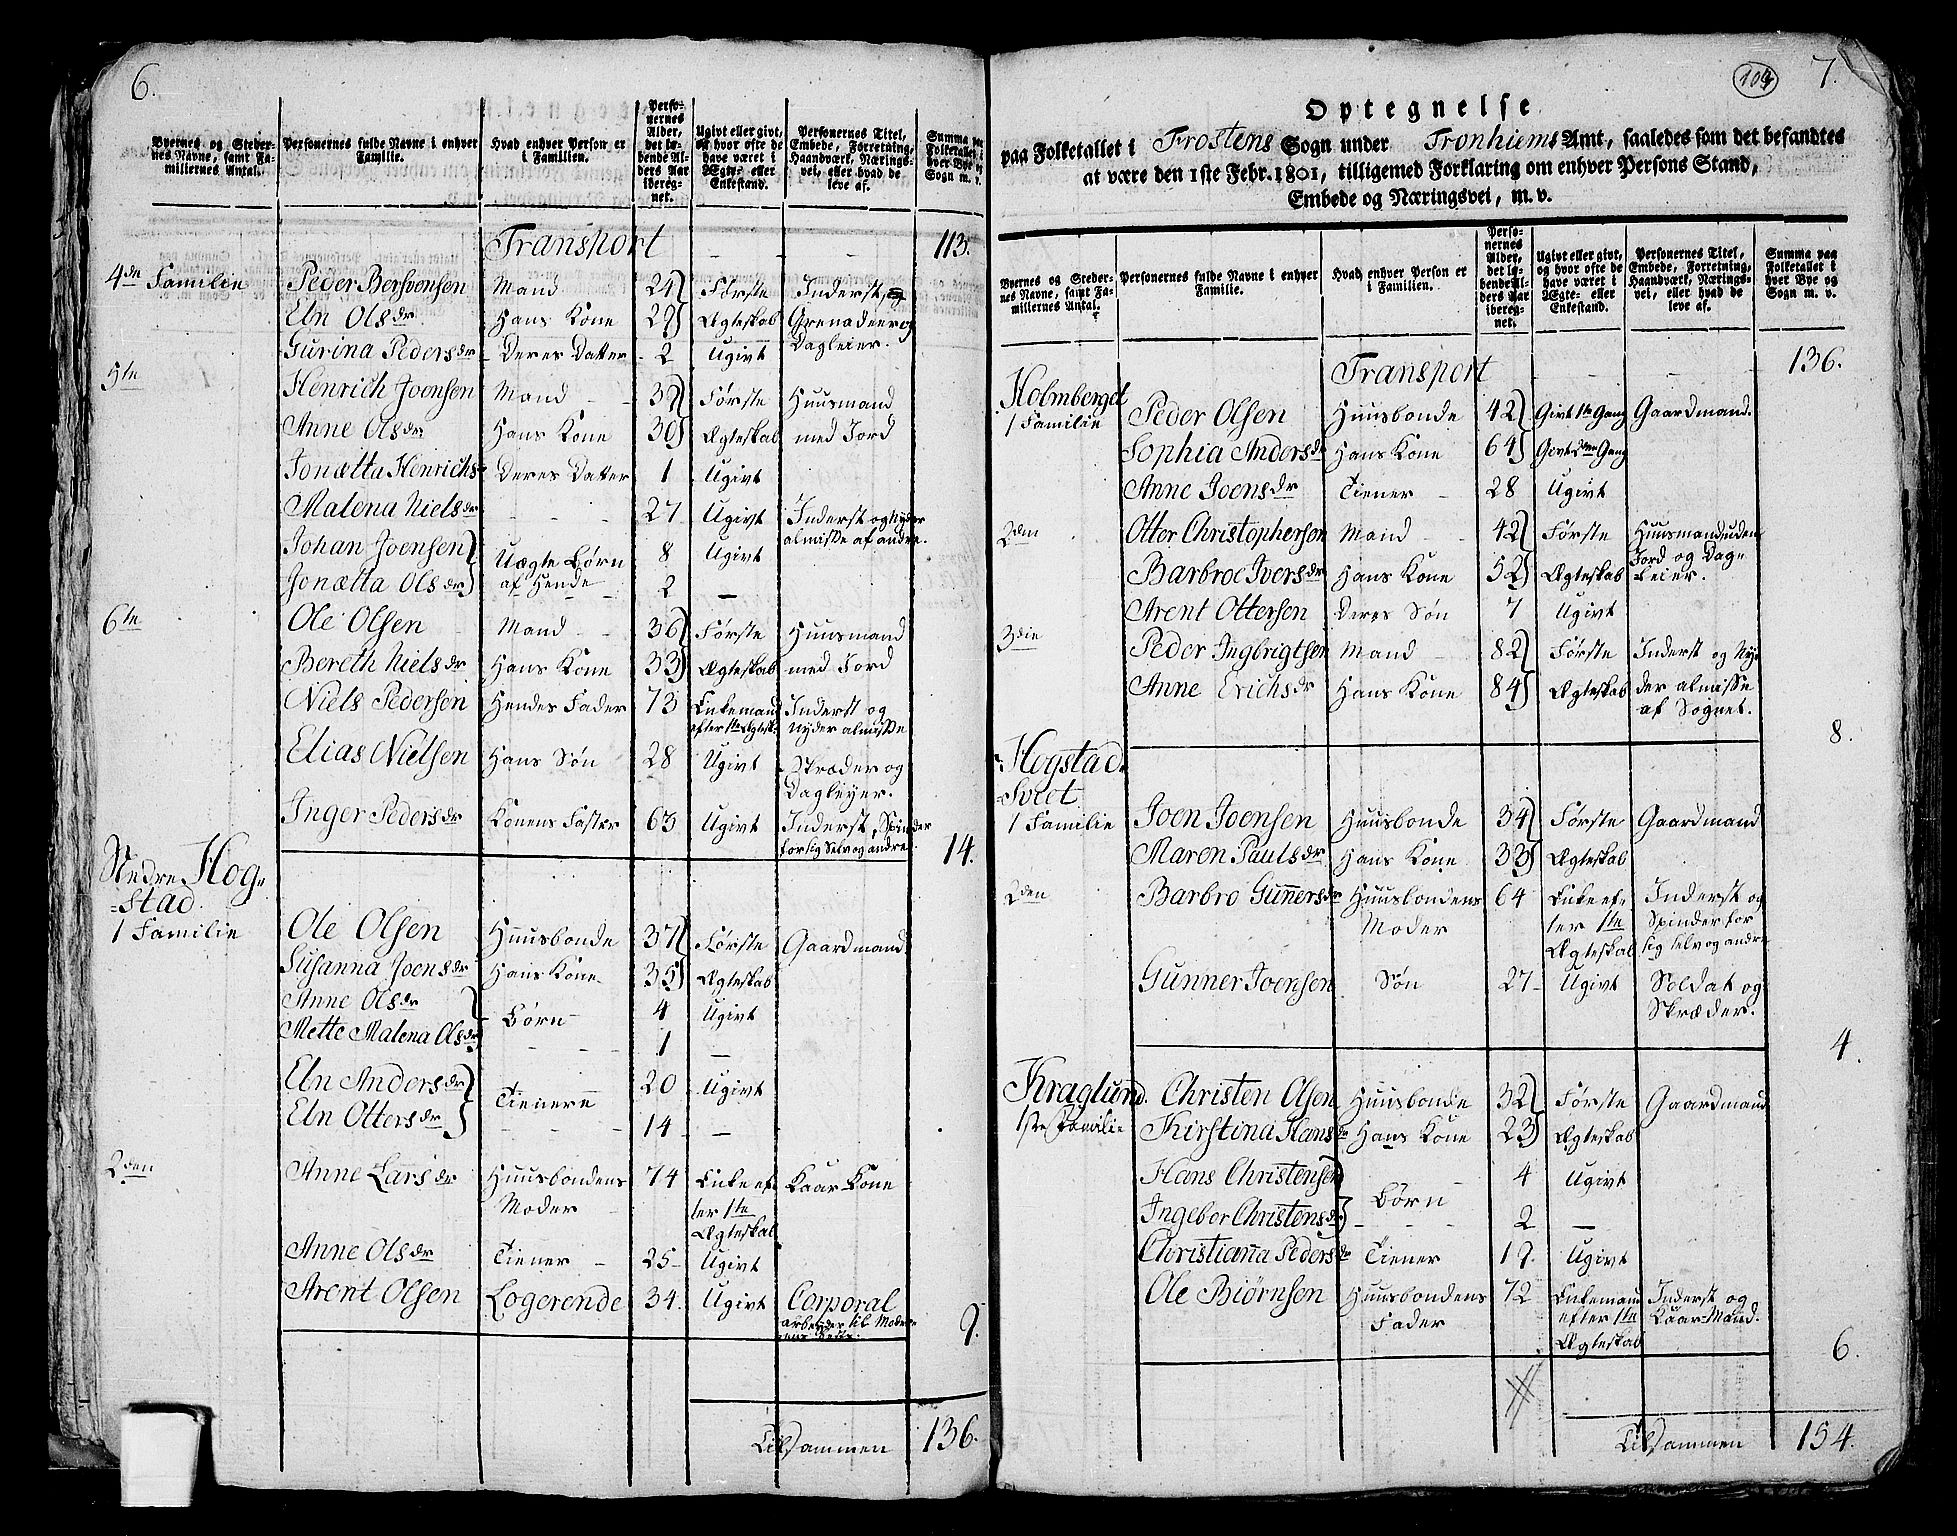 6.
Byernes og Steder-
nes Navne, samt Fa-
miliernes Antal.
Personernes fulde Navne i enhver
Familie.
Hvad enhver Person er
i Familien.
Perso-
nernes
Alder,
det lø-
bende Al-
ders Aar
ibereg-
net.
Ugivt eller givt,
og hvor ofte de
have været i
Ægte- eller
Enkestand.
Personernes Titel,
Embede, Forretning,
Haandværk, Nærings-
vei, eller hvad de
leve af.
Summa paa
Folketallet i
hver Bye og
Sogn m. v.
Transport 113.
4de Familie Peder Mand 24 Første Inderst,
Eln Olsdr Hans Kone 29 Ægteskab Grenadeer og
Gurina Pedersdr Deres Datter 2 Ugivt Dagleier.
5te Henrich Joensen Mand 39 Første Huusmand
Anne Olsdr Hans Kone 30 Ægteskab med Jord
Jonætta Henrichs- Deres Datter 1 Ugivt
Malena Nielsdr 27 Ugivt Inderst og Nyder
Johan Joensen Uægte Børn 8 Ugivt almisse af andre.
Jonætta Olsdr af Hende 2 —
6te Ole Olsen Mand 36 Første Huusmand
Bereth Nielsdr Hans Kone 33 Ægteskab med Jord
Niels Pedersen Hendes Fader 73 Enkemand Inderst og
efter 1te Ægtesk: Nyder almisse
Elias Nielsen Hans Søn 28 Ugivt Skræder og
Dagleyer.
Inger Pedersdr Konens Faster 63 Ugivt Inderst, Spinder
for sig Selv og andre 14.
Nedre Hog-
-stad.
1 Familie Ole Olsen Huusbonde 37 Første Gaardmand
Susanna Joensdr Hans Kone 35 Ægteskab
Anne Olsdr Børn 4 Ugivt
Mette Malena Olsdr 1 —
Eln Andersdr Tienere 20 Ugivt
Eln Ottersdr 14 —
2den Anne Larsdr Huusbondens 74 Enke ef- Kaar Kone
Moder ter 1te
Ægteskab
Anne Olsdr Tiener 25 Ugivt
Arent Olsen Logerende 34. Ugivt Corporal
arbeyder til Moder-
9.
Tilsammen 136.
109 7.
Optegnelse
paa Folketallet i Frostens Sogn under Tronhiems Amt, saaledes som det befandtes
at være den 1ste Febr. 1801, tilligemed Forklaring om enhver Persons Stand,
Embede og Næringsvei, m. v.
Byernes og Steder-
nes Navne, samt Fa-
miliernes Antal.
Personernes fulde Navne i enhver
Familie.
Hvad enhver Person er
i Familien.
Perso-
nernes
Alder,
det lø-
bende Al-
ders Aar
ibereg-
net.
Ugivt eller givt,
og hvor ofte de
have været i
Ægte- eller
Enkestand.
Personernes Titel,
Embede, Forretning,
Haandværk, Nærings-
vei, eller hvad de
leve af.
Summa paa
Folketallet i
hver Bye og
Sogn m. v.
Transport 136.
Holmberget
1 Familie Peder Olsen Huusbonde 42 Givt 1te Gang Gaardmand.
Sophia Andersdr Hans Kone 64 Givt 2den Gang
Anne Joensdr Tiener 28 Ugivt
2den Otter Christophersen Mand 42 Første Huusmand uden
Barbroe Iversdr Hans Kone 52 Ægteskab Jord og Dag-
leier.
Arent Ottersen Deres Søn 7 Ugivt
3die Peder Ingbrigtsen Mand 82 Første Inderst og Ny-
Anne Erichsdr Hans Kone 84 Ægteskab der almisse
af Sognet.
8.
Hogstad-
Sveet
1 Familie Joen Joensen Huusbonde 34 Første Gaardmand
Maren Paulsdr Hans Kone 33 Ægteskab
2den Barbro Gunnersdr Huusbondens 64 Enke ef- Inderst og
Moder ter 1te Spinder for
Ægteskab sig selv og andre
Gunner Joensen Søn 27 Ugivt Soldat og
Skræder.
4.
Kraglund.
1ste Familie Christen Olsen Huusbonde 32 Første Gaardmand
Kirstina Hansdr Hans Kone 23 Ægteskab
Hans Christensen Børn 4 Ugivt
Ingebor Christensdr 2 —
Christianna Pedersdr Tiener 19. Ugivt
Ole Biørnsen Huusbondens 72 Enkemand Inderst og
Fader efter 1te Kaar-Mand.
Ægteskab
6.
Tilsammen 154.